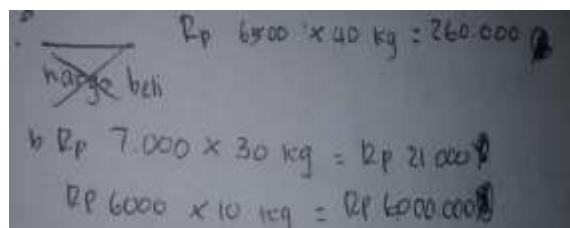 a Rp 6500 x 40 kg = 260.000
harga beli
b Rp 7.000 x 30 kg = Rp 21 000
Rp 6000 x 10 kg = Rp 6000.000